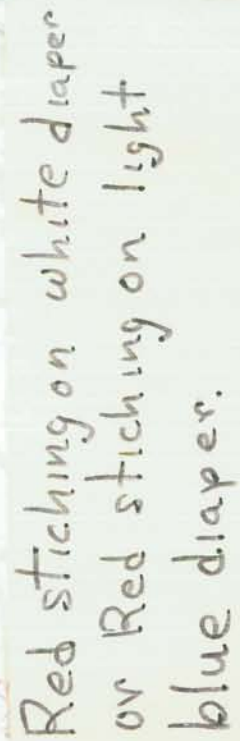 Red stiching on white diaper
or Red stiching on light
blue diaper.